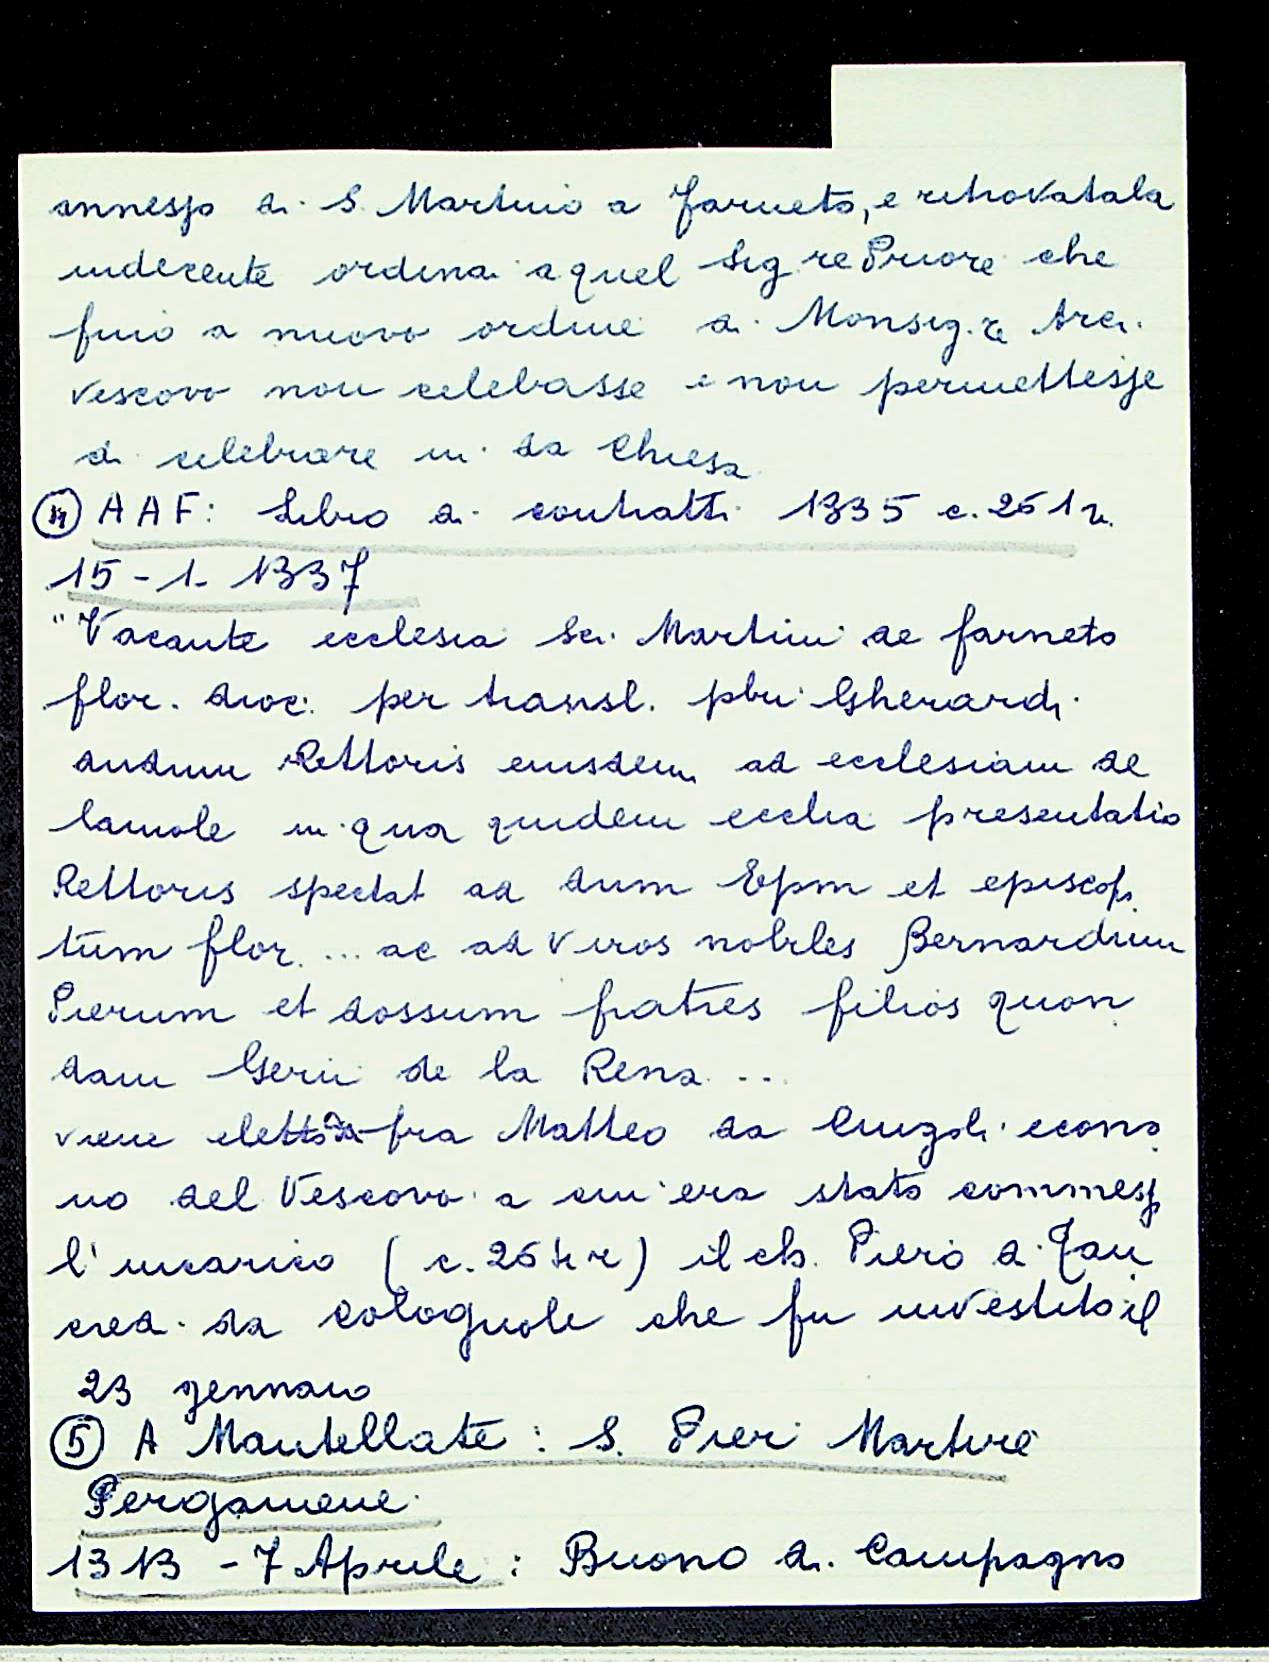 annesso di S. Martino a Farneto, e ritrovatala
indecente ordinai a quel Sig.re Priore che
fino a nuovo ordine di Monsig.re Arci-
vescovo non celebasse e non permettesse
di celebrare in da Chiesa
④ AAF: Libro di contratti 1335 c. 261 r.
15-1-1337
"Vacante ecclesia Sci. Martini de farneto
flor. dioc. per transl. pbri Gherardi
dudum Rettoris eiusdem ad ecclesiam de
lamole in qua quidem ecclia presentatio
Rettoris spectat ad dum Epm et episcop.
tum flor. ... ac ad viros nobiles Bernardum
Pierum et dossum fratres filios quon
dam Gerii de la Rena ...
viene eletto da fra Matteo da Cingoli econo
mo del Vescovo a cui era stato commesso
l'incarico (c. 264 r) il ch. Piero di Tan
cred. da Cologuole che fu investito il
23 gennaio
⑤ A Mantellate: S. Pier Martire
Pergamene
1313 - 7 Aprile: Buono di Campagno